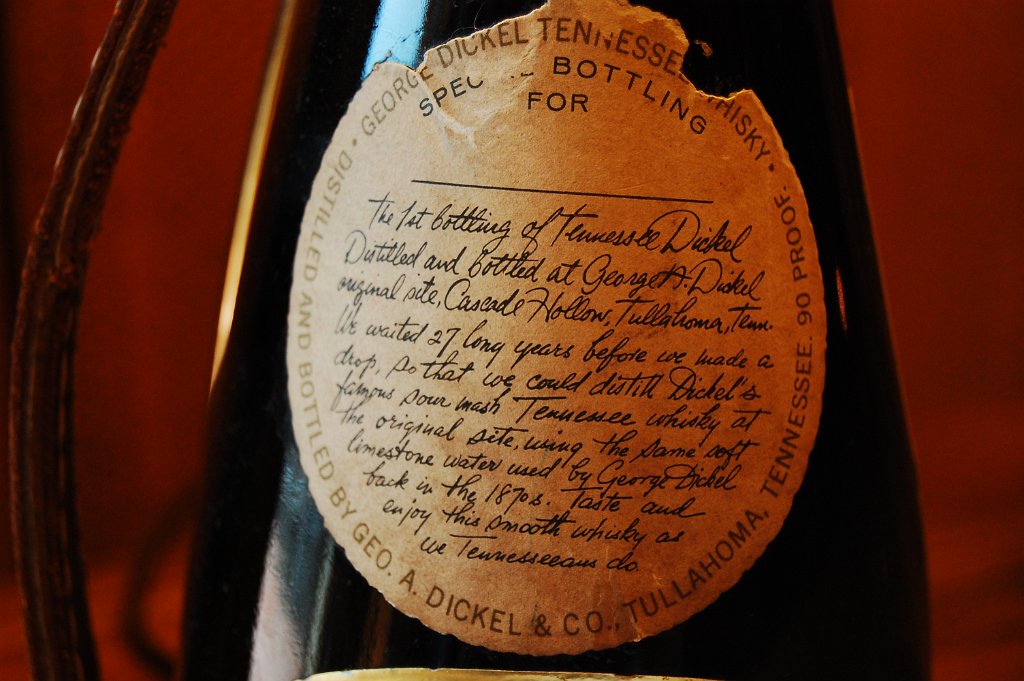 GEORGE DICKEL TENNESSEE WHISKY •
SPECIAL BOTTLING
FOR
The 1st bottling of Tennessee Dickel
Distilled and bottled at George A. Dickel
original site, Cascade Hollow, Tullahoma, Tenn.
We waited 27 long years before we made a
drop, so that we could distill Dickel's
famous sour mash Tennessee whisky at
the original site, using the same soft
limestone water used by George Dickel
back in the 1870s. Taste and
enjoy this smooth whisky as
we Tennesseeans do
DISTILLED AND BOTTLED BY GEO. A. DICKEL & CO., TULLAHOMA, TENNESSEE. 90 PROOF. •